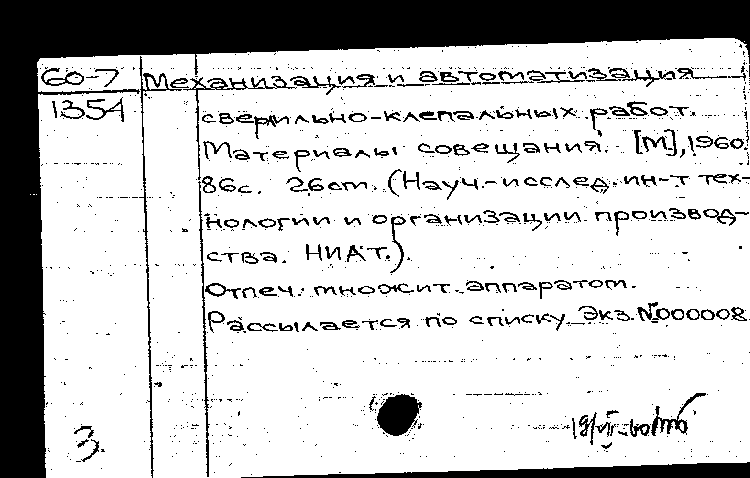 60-7 Механизация и автоматизация
1354 сверлильно-клепальных работ.
Материалы совещания. [М], 1960.
86с. 26cm. (Науч.-исслед. ин-т тех-
нологии и организации производ-
ства. НИАТ.).
Отпеч. множит. аппаратом.
Рассылается по списку Экз. №000008.
3.